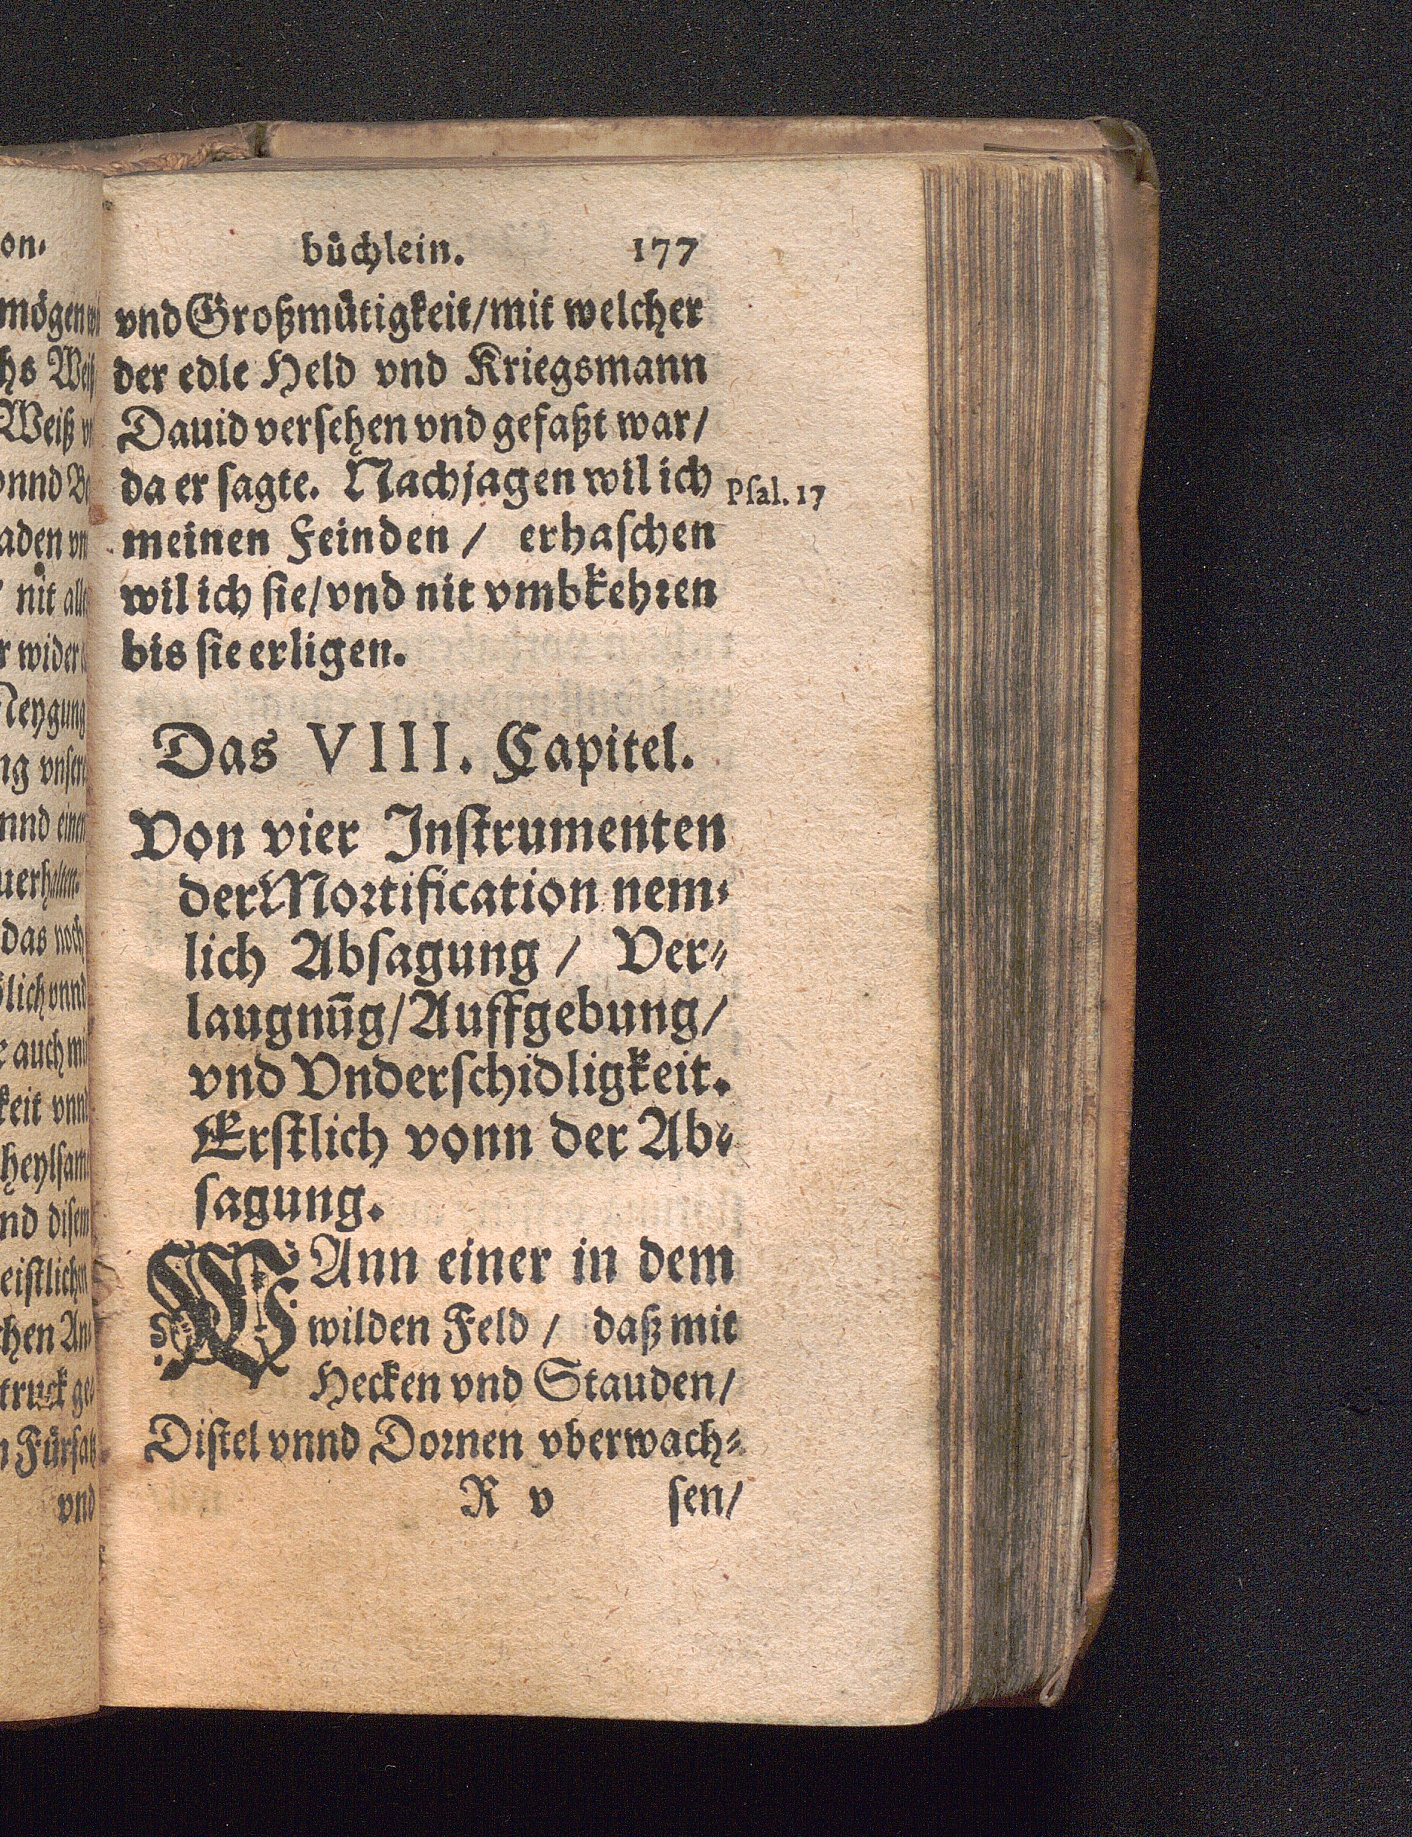 on.
mögen
hs Weiß
Weiß
vnnd
aden
nit
r wider
Neygung
ng vnsere
nnd einer
das noch
lich vnnd
e auch mit
keit vnnd
heylsam
nd disem
eistlichen
chen An-
truck ge-
n Fürsatz
vnd
büchlein. 177
vnd Großmütigkeit/mit welcher
der edle Held vnd Kriegsmann
Dauid versehen vnd gefaßt war/
da er sagte. Nachjagen wil ich
Psal. 17
meinen Feinden / erhaschen
wil ich sie/vnd nit vmbkehren
bis sie erligen.
Das VIII. Capitel.
Von vier Instrumenten
der Mortification nem-
lich Absagung / Ver-
laugnūg/Auffgebung/
vnd Vnderschidligkeit.
Erstlich vonn der Ab-
sagung.
WAnn einer in dem
wilden Feld / daß mit
Hecken vnd Stauden/
Distel vnnd Dornen vberwach-
R v sen/